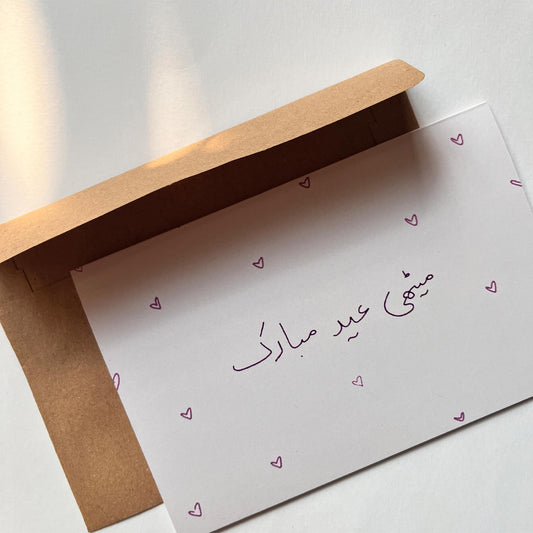 میٹھی عید مبارک